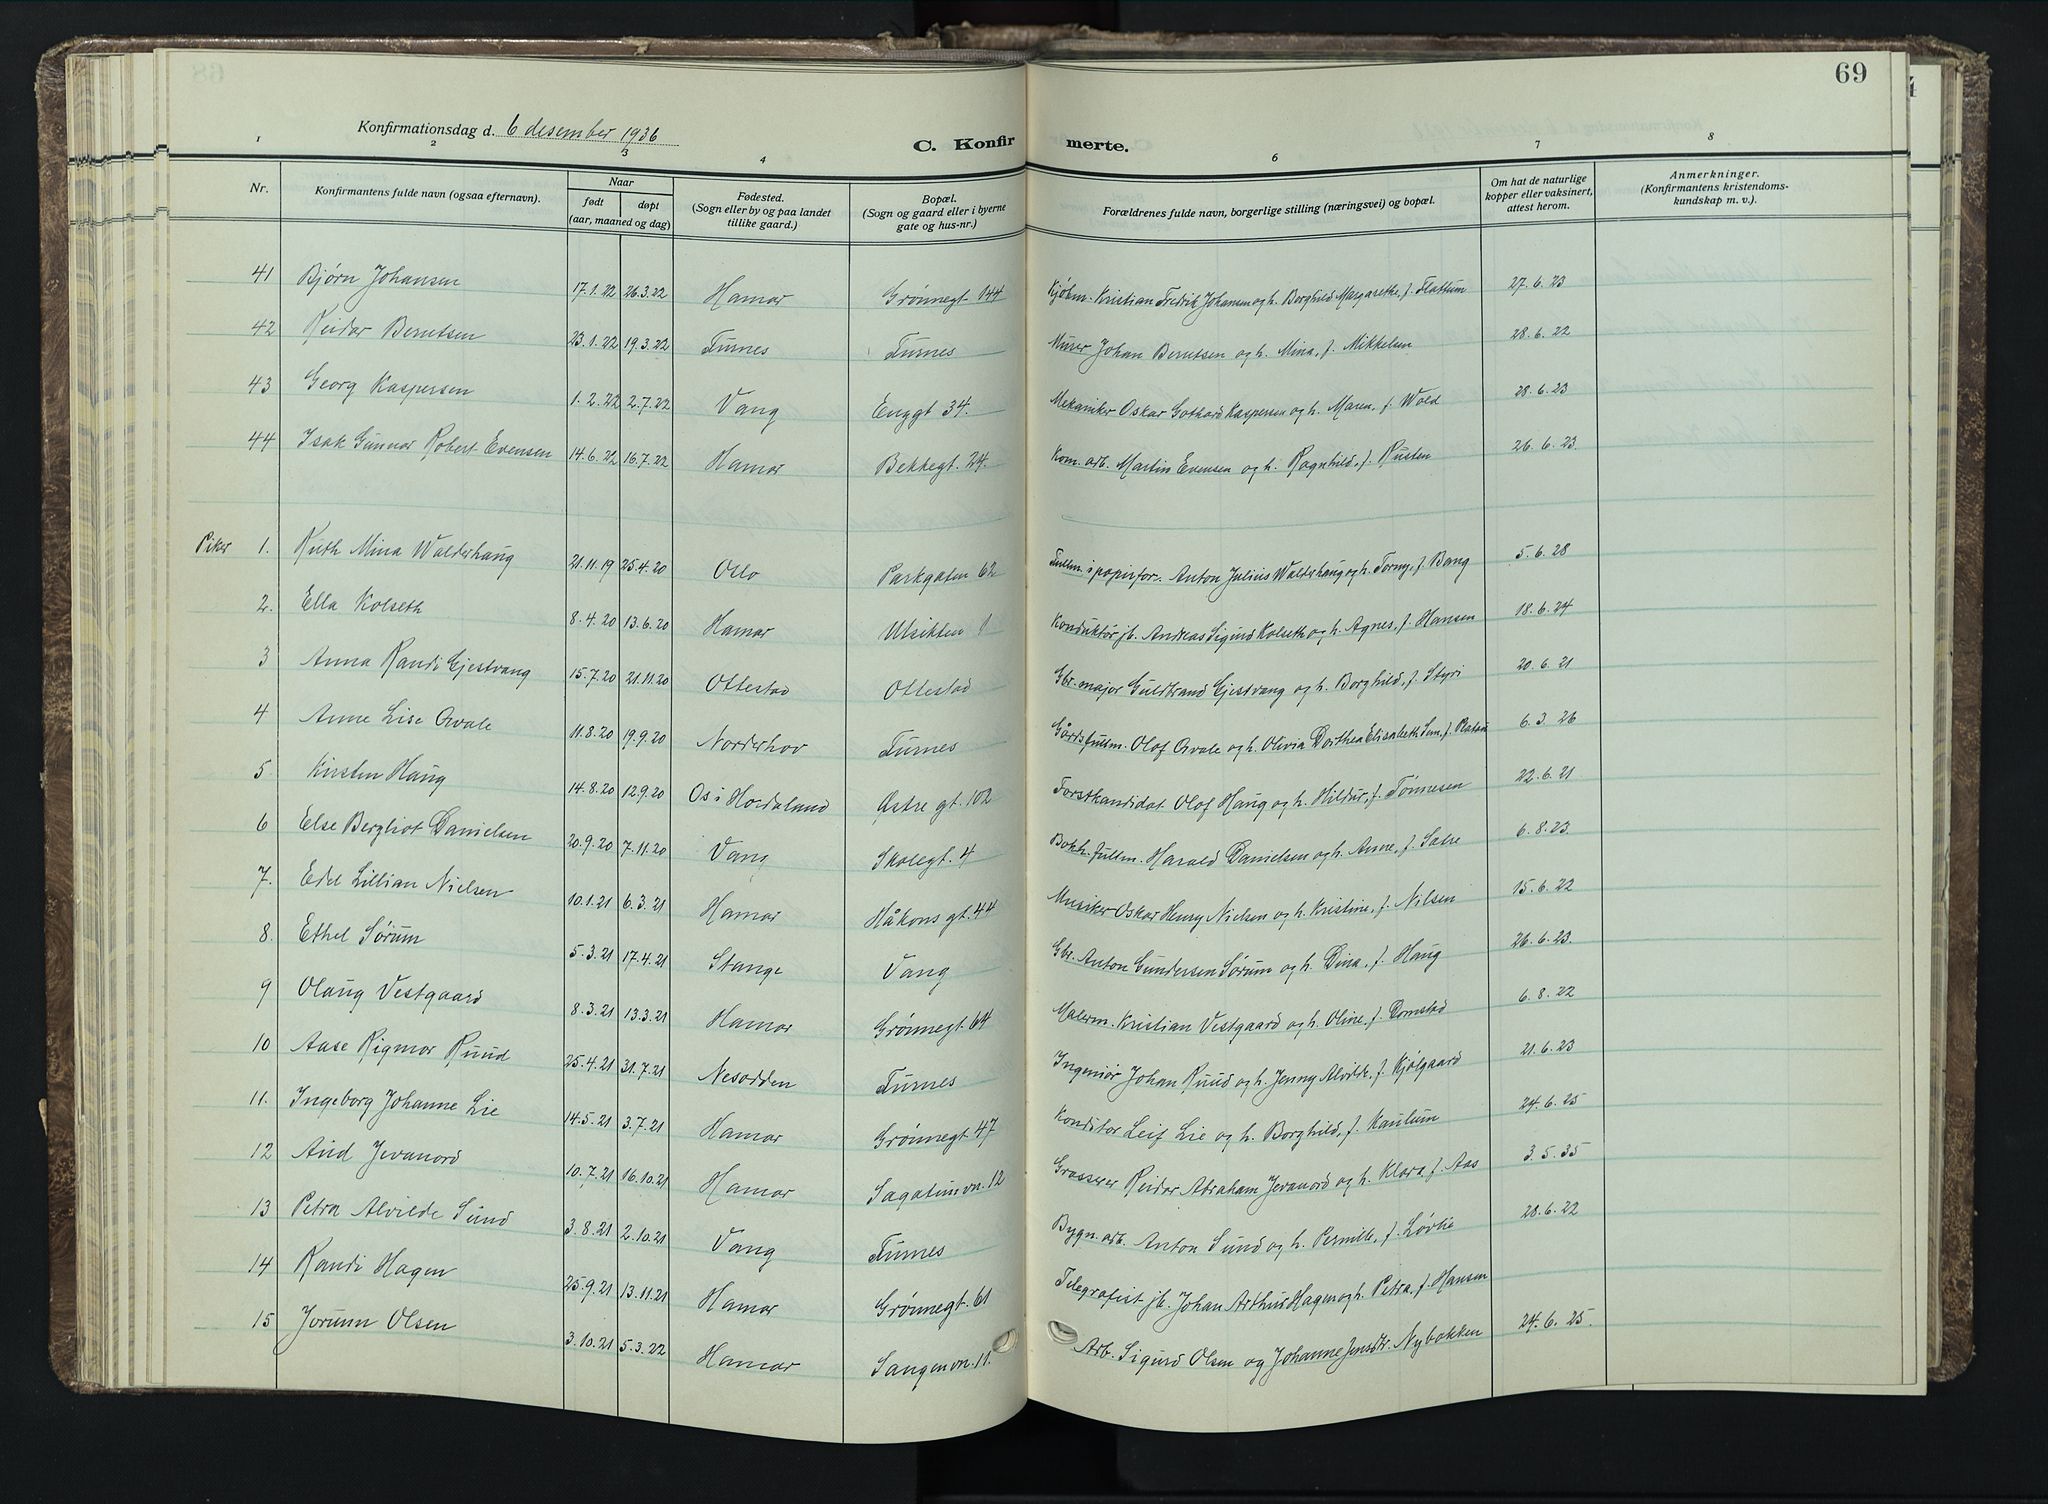 69
Konfirmationsdag d. 6 desember 1936
C. Konfirmerte.
1 2 3 4 6 7 8
Nr. | Konfirmantens fulde navn (ogsaa efternavn). | Naar født døpt (aar, maaned og dag) | Fødested. (Sogn eller by og paa landet tillike gaard.) | Bopæl. (Sogn og gaard eller i byerne gate og hus-nr.) | Forældrenes fulde navn, borgerlige stilling (næringsvei) og bopæl. | Om hat de naturlige kopper eller vaksinert, attest herom. | Anmerkninger. (Konfirmantens kristendomskundskap m. v.).
41 Bjørn Johansen 17.1.22 26.3.22 Hamar Grønnegt. 144 Kjøbm. Kristian Fredrik Johansen og h. Borghild Margarethe, f. Flattum 27.6.23
42 Reidar Berntsen 23.1.22 19.3.22 Furnes Furnes Murer Johan Berntsen og h. Mina, f. Mikkelsen 28.6.22
43 Georg Kaspersen 1.2.22 2.7.22 Vang Enggt 34. Mekaniker Oskar Gothard Kaspersen og h. Maren, f. Wold 28.6.23
44 Isak Gunnar Robert Evensen 14.6.22 16.7.22 Hamar Bekkegt. 24. Kom. arb. Martin Evensen og h. Ragnhild, f. Rusten 26.6.23
Piker 1. Ruth Mina Walderhaug 21.11.19 25.4.20 Oslo Parkgaten 62 Fullm. i papirfor. Anton Julius Walderhaug og h. Torny, f. Bang 5.6.28
2. Ella Kolseth 8.4.20 13.6.20 Hamar Utsikten 1 Konduktør jb. Andreas Sigurd Kolseth og h. Agnes, f. Hansen 18.6.24
3 Anna Randi Gjestvang 15.7.20 21.11.20 Ottestad Ottestad Gbr. major Guldbrand Gjestvang og h. Borghild, f. Styri 20.6.21
4 Anne Lise Orvale 11.8.20 19.9.20 Norderhov Furnes Gårdsfullm. Olof Orvale og h. Olivia Dorthea Elisabeth f. 6.3.26
5 Kirsten Haug 14.8.20 12.9.20 Os i Hordaland Østre gt. 102 Forstkandidat Olof Haug og h. Hildur, f. Tønnesen 22.6.21
6 Else Bergliot Danielsen 20.9.20 7.11.20 Vang Skolegt. 4 Bokh. fullm. Harald Danielsen og h. Anne, f. Satre 6.8.23
7. Edel Lillian Nielsen 10.1.21 6.3.21 Hamar Håkons gt. 44 Musiker Oskar Henry Nielsen og h. Kristine, f. Nilsen 15.6.22
8. Ethel Sørum 5.3.21 17.4.21 Stange Vang Gbr. Anton Gundersen Sørum og h. Dina, f. Haug 26.6.23
9 Olaug Vestgaard 8.3.21 13.3.21 Hamar Grønnegt. 64 Malerm. Kristian Vestgaard og h. Oline, f. Romstad 6.8.22
10 Aase Rigmor Ruud 25.4.21 31.7.21 Nesodden Furnes Ingeniør Johan Ruud og h. Jenny Alvilde, f. Kjølgaard 21.6.23
11. Ingeborg Johanne Lie 14.5.21 3.7.21 Hamar Grønnegt. 47 Konditor Leif Lie og h. Borghild, f. Kaulum 24.6.25
12 Aud Jevanord 10.7.21 16.10.21 Hamar Sagatunvn. 12 Grosserer Reidar Abraham Jevanord og h. Klara, f. Aas 3.5.35
13 Petra Alvilde Sund 3.8.21 2.10.21 Vang Furnes Bygn. arb. Anton Sund og h. Pernille, f. Løvlie 28.6.22
14 Randi Hagen 25.9.21 13.11.21 Hamar Grønnegt. 61 Telegrafist jb. Johan Arthur Hagen og h. Petra, f. Hansen
15 Jorunn Olsen 3.10.21 5.3.22 Hamar Sangenvn. 11. Arb. Sigurd Olsen og Johanne Jensdtr. Nybakken 24.6.25.